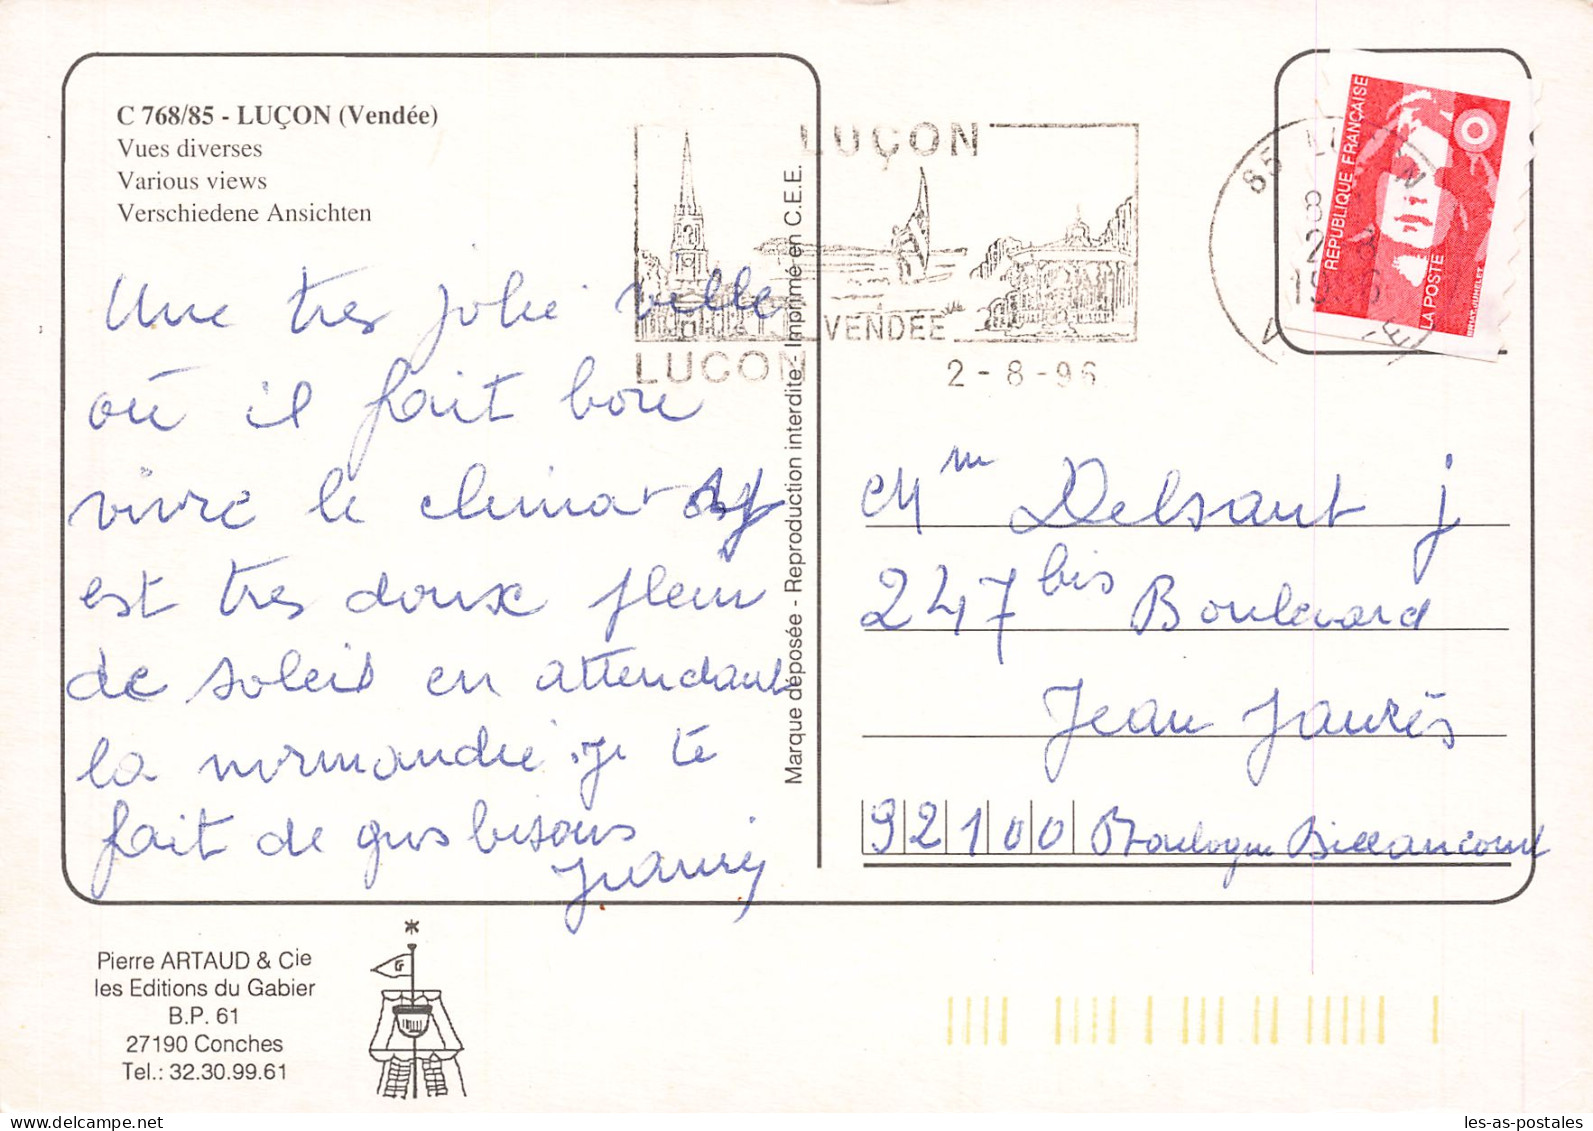 C 768/85 - LUÇON (Vendée)
Vues diverses
Various views
Verschiedene Ansichten
Une tres jolie ville
où il fait bon
vivre le climat
est tres doux plein
de soleil en attendant
la normandie. je te
fait de gros bisous
Marque déposée - Reproduction interdite - Imprimé en C.E.E.
LUÇON
VENDEE
LUCON
2-8-96
85 LUÇON
8
2
1996
RÉPUBLIQUE FRANÇAISE
LA POSTE
BRIAT.JUMELET
Mm Delsaut J
247 bis Boulevard
Jean Jaurès
92100 Boulogne Billancourt
Pierre ARTAUD & Cie
les Editions du Gabier
B.P. 61
27190 Conches
Tel.: 32.30.99.61
les-as-postales